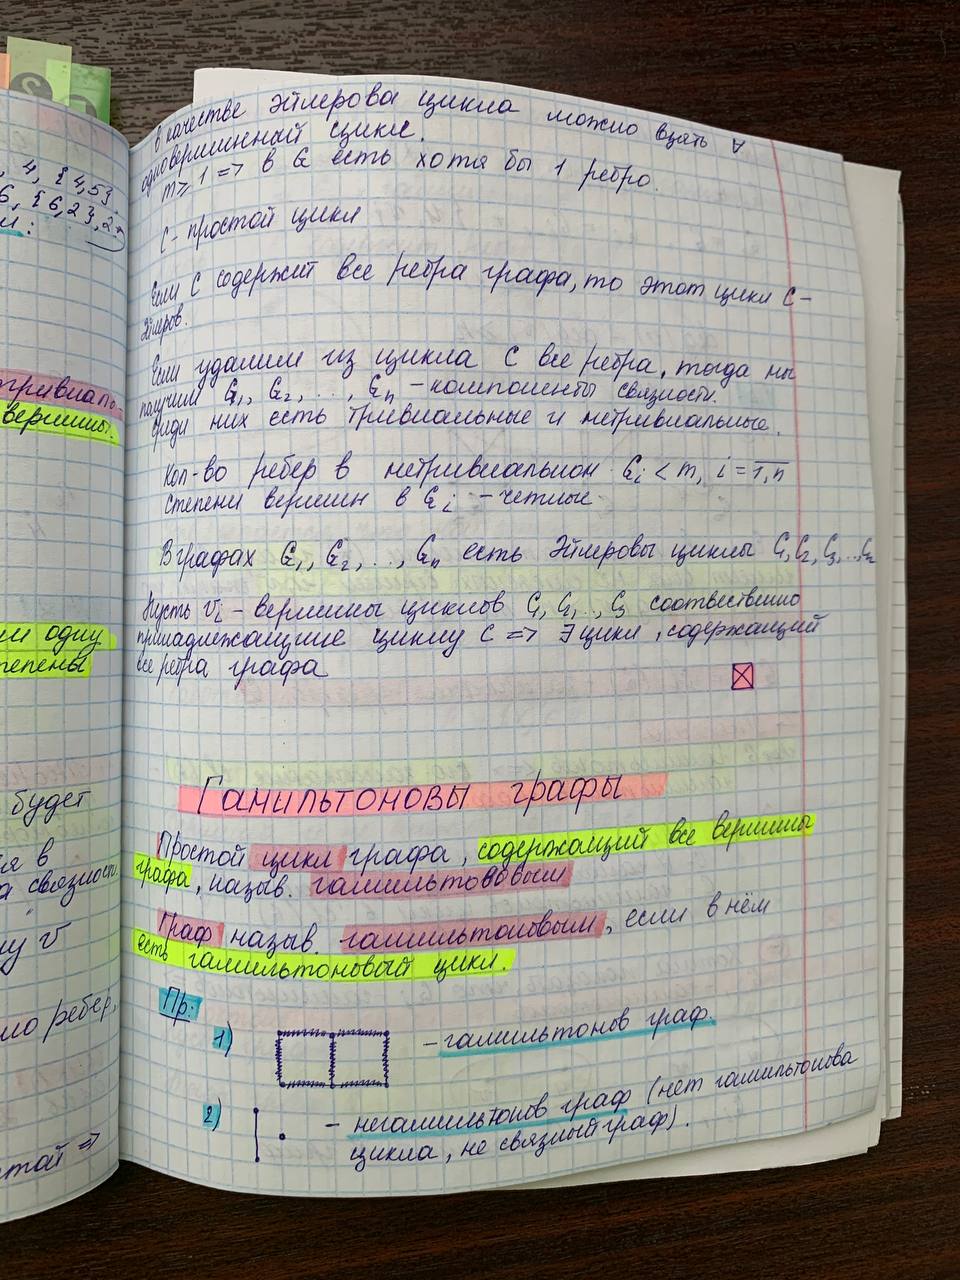 , 4, {4,5}.
6, {6,2}, 2
тривиаль-
вершины.
ми одну
степены
будет
ся в
а связност.
му v
ло ребер,
стой =>
в качестве эйлерова цикла можно взять ∀
одновершинный цикл.
m ≥ 1 => в G есть хотя бы 1 ребро.
C - простой цикл
Если C содержит все ребра графа, то этот цикл C -
Эйлеров.
Если удалим из цикла C все ребра, тогда мы
получим G₁, G₂, ..., Gₙ - компоненты связности.
Среди них есть тривиальные и нетривиальные.
Кол-во ребер в нетривиальном Gᵢ < m, i = 1,n
степени вершин в Gᵢ - четные
В графах G₁, G₂, ..., Gₙ есть Эйлеровы циклы C₁, C₂, C₃...Cₙ
Пусть vᵢ - вершины циклов C₁, C₂, ..., C₃ соотвественно
принадлежащие циклу C => ∃ цикл, содержащий
все ребра графа
Гамильтоновы графы
Простой цикл графа, содержащий все вершины
графа, назыв. гамильтововым
Граф назыв. гамильтоновым, если в нём
есть гамильтоновый цикл.
Пр:
1) - гамильтонов граф.
2) - негамильтонов граф (нет гамильтонова
цикла, не связный граф).